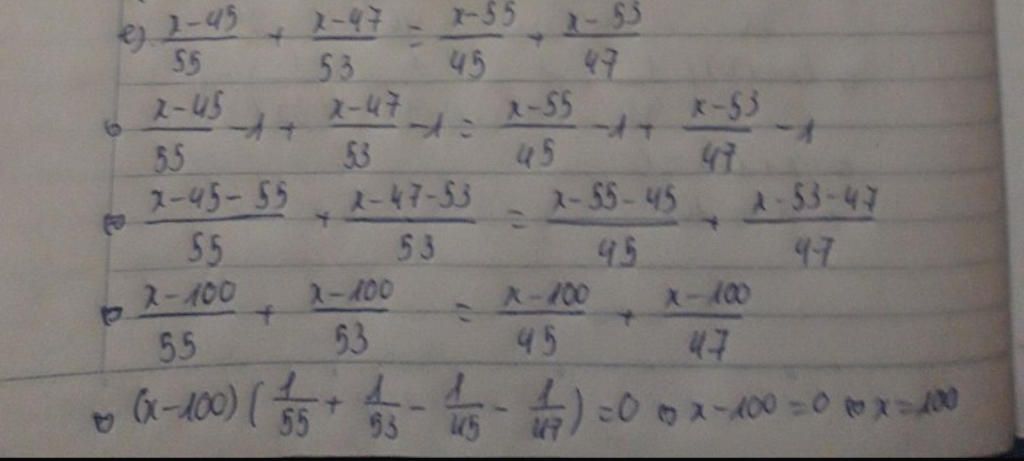 e) (x-45)/55 + (x-47)/53 = (x-55)/45 + (x-53)/47
⇔ (x-45)/55 -1 + (x-47)/53 -1 = (x-55)/45 -1 + (x-53)/47 -1
⇔ (x-45-55)/55 + (x-47-53)/53 = (x-55-45)/45 + (x-53-47)/47
⇔ (x-100)/55 + (x-100)/53 = (x-100)/45 + (x-100)/47
⇔ (x-100)(1/55 + 1/53 - 1/45 - 1/47) = 0 ⇔ x-100 = 0 ⇔ x = 100